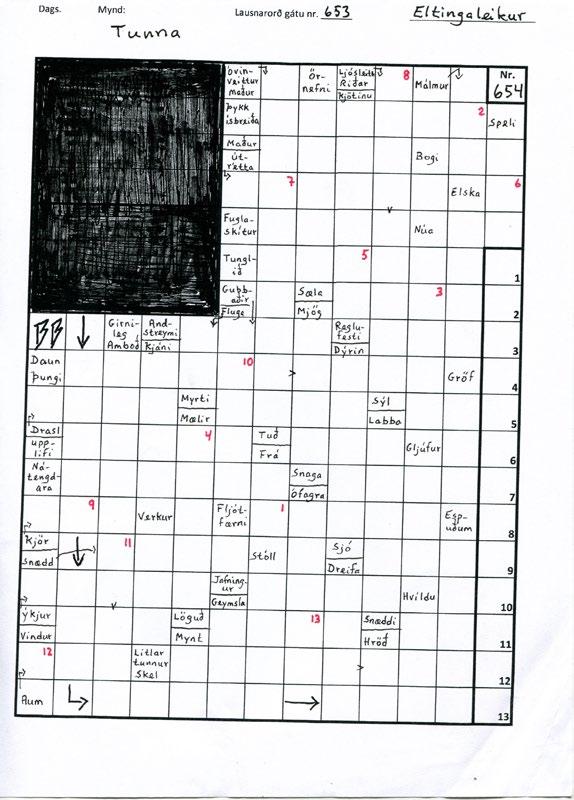 Dags. Mynd: Lausnarorð gátu nr. 653 Eltingaleikur
Tunna
Óvin-
veittur
maður
Ör-
nefni
Ljósleit
Riðar
Kjötinu
8
Málmur
Nr.
654
Þykk
ísbreiða
2
Speli
Maður
út-
rétta
Bogi
7
Elska
6
Fugla-
skítur
Núa
Tungl-
ið
5
1
Gubb-
aðir
Fluge
Sæla
Mjög
3
2
BB
Girni-
leg
Amboð
And-
streymi
Kjáni
Reglu-
festi
Dýrin
3
Daun
Þungi
10
Gröf
4
Myrti
Mælir
Sýl
Labba
5
Drasl
upp-
lifi
4
Tuð
Frá
Gljúfur
6
Ná-
tengd-
ara
Snaga
Ófagra
7
9
Verkur
Fljót-
færni
1
Esp-
uðum
8
Kjör
Snædd
11
Stóll
Sjó
Dreifa
9
Jafning-
ur
Geymsla
Hvíldu
10
Ýkjur
Vindur
Löguð
Mynt
13
Snæddi
Hröð
11
12
Litlar
tunnur
Skel
12
Aum
13